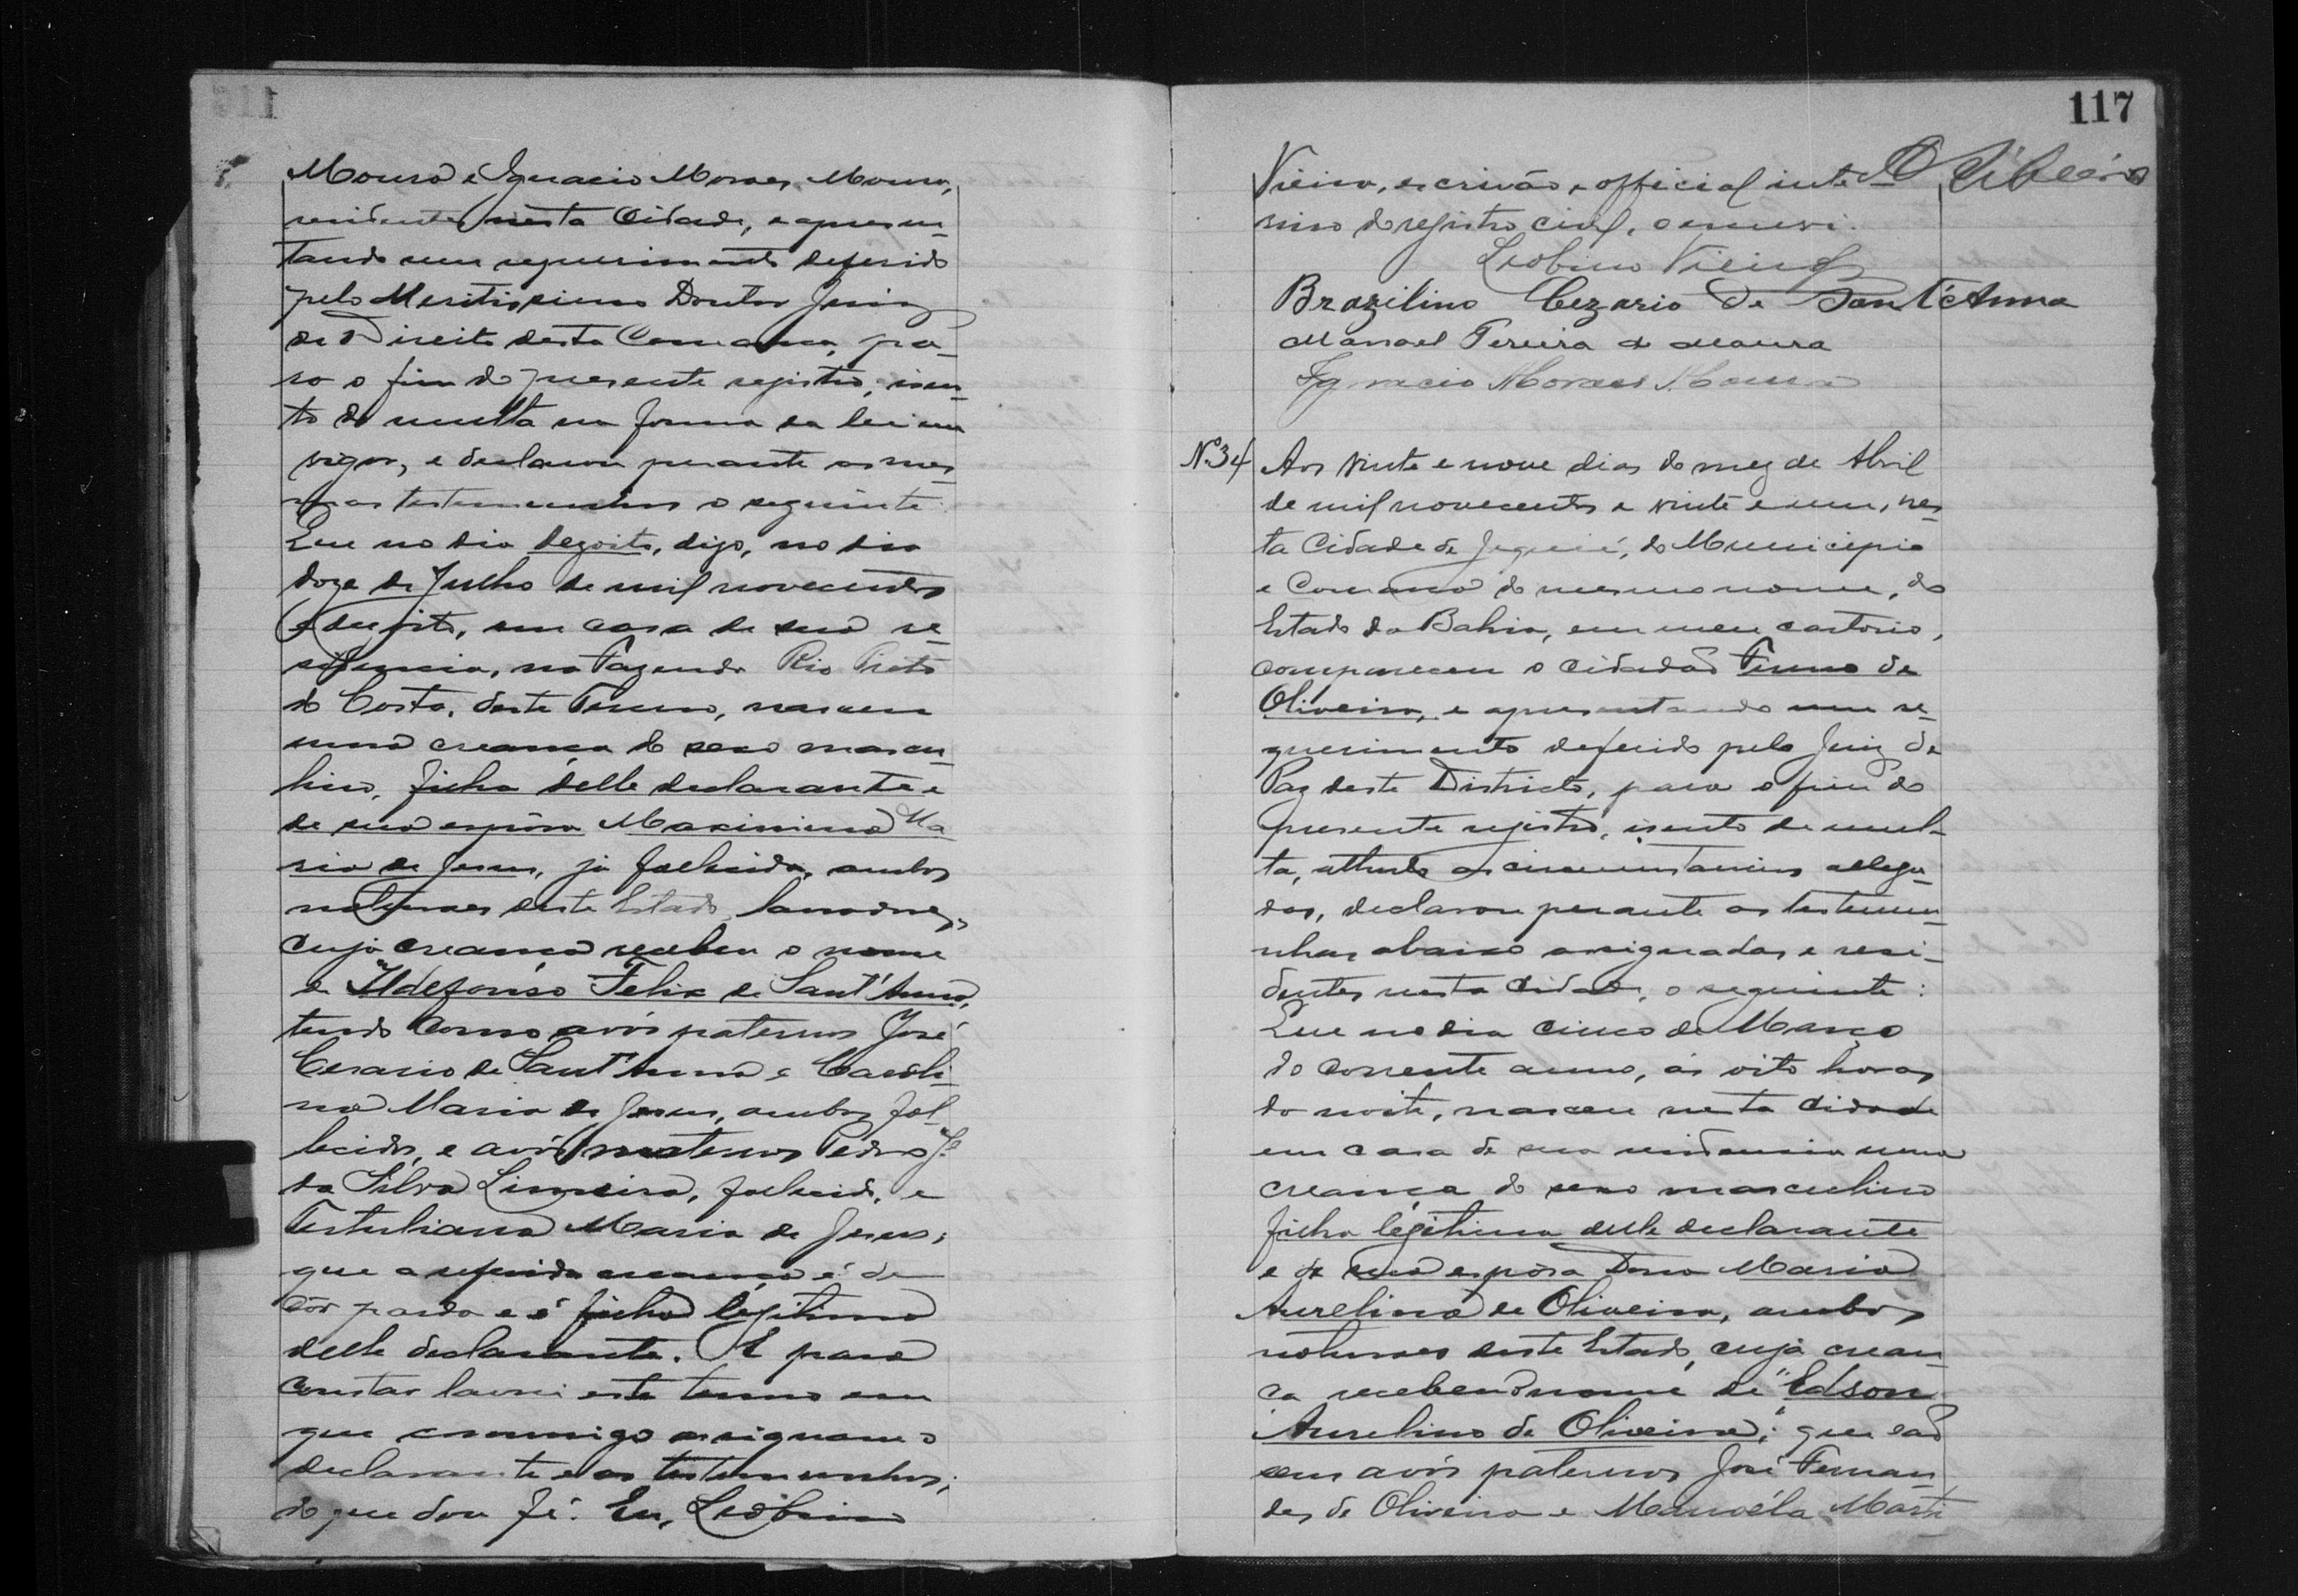 Moura e Ignacio Moraes Moura,
residentes nesta Cidade, e apresen-
tando um requerimento deferido
pelo Meritissimo Doutor Juiz
de Direito desta Comarca, pa-
ra o fim do presente registro, isen-
to de multa na forma da lei em
vigor, e declarou perante as mes-
mas testemunhas o seguinte:
Que no dia dezoito, digo, no dia
doze de Julho de mil novecentos
e dezoito, em casa de sua re-
sidencia, na Fazenda Rio Preto
do Costa, deste Termo, nasceu
uma creança do sexo mascu-
lino, filha delle declarante e
de sua espôsa Maximiana Ma
ria de Jesus, já fallecida, ambos
naturaes deste Estado, lavradores,
cuja creança recebeu o nome
de "Ildefonso Felix de Sant'Anna,
tendo como avós paternos José
Cesario de Sant'Anna e Caroli-
na Maria de Jesus, ambos fal-
lecidos, e avós maternos Pedro Jé
da Silva Limeira, fallecido, e
Tertuliana Maria de Jesus;
que a referida creança é de
côr parda e é filha legitima
delle declarante. E para
constar lavrei este termo em
que commigo assignam o
declarante e as testemunhas;
do que dou fé. Eu, Leobino
117
Ribeiro
Vieira, escrivão e official inte-
rino do registro civil, o escrevi.
Leobino Vieira
Brazilino Cezario de Sant'Anna
Manoel Pereira de Moura
Ignacio Moraes Moura
Nº 34 Aos vinte e nove dias do mez de Abril
de mil novecentos e vinte e um, nes-
ta Cidade de Jequié, do Municipio
e Comarca do mesmo nome, do
Estado da Bahia, em meu cartorio,
compareceu o cidadão Firmo de
Oliveira, e apresentando um re-
querimento deferido pelo Juiz de
Paz deste Districto, para o fim do
presente registro, isento de mul-
ta, attentas as circumstancias allega-
das, declarou perante as testemu-
nhas abaixo assignadas e resi-
dentes nesta Cidade, o seguinte:
Que no dia cinco de Março
do corrente anno, ás oito horas
da noite, nasceu nesta cidade
em casa de sua residencia uma
creança do sexo masculino
filha legitima delle declarante
e de sua espôsa Dona Maria
Aurelina de Oliveira, ambos
naturaes deste Estado, cuja crean-
ça recebeu o nome de "Edson
Aurelino de Oliveira;" que são
seus avós paternos José Fernan-
des de Oliveira e Manoéla Marti